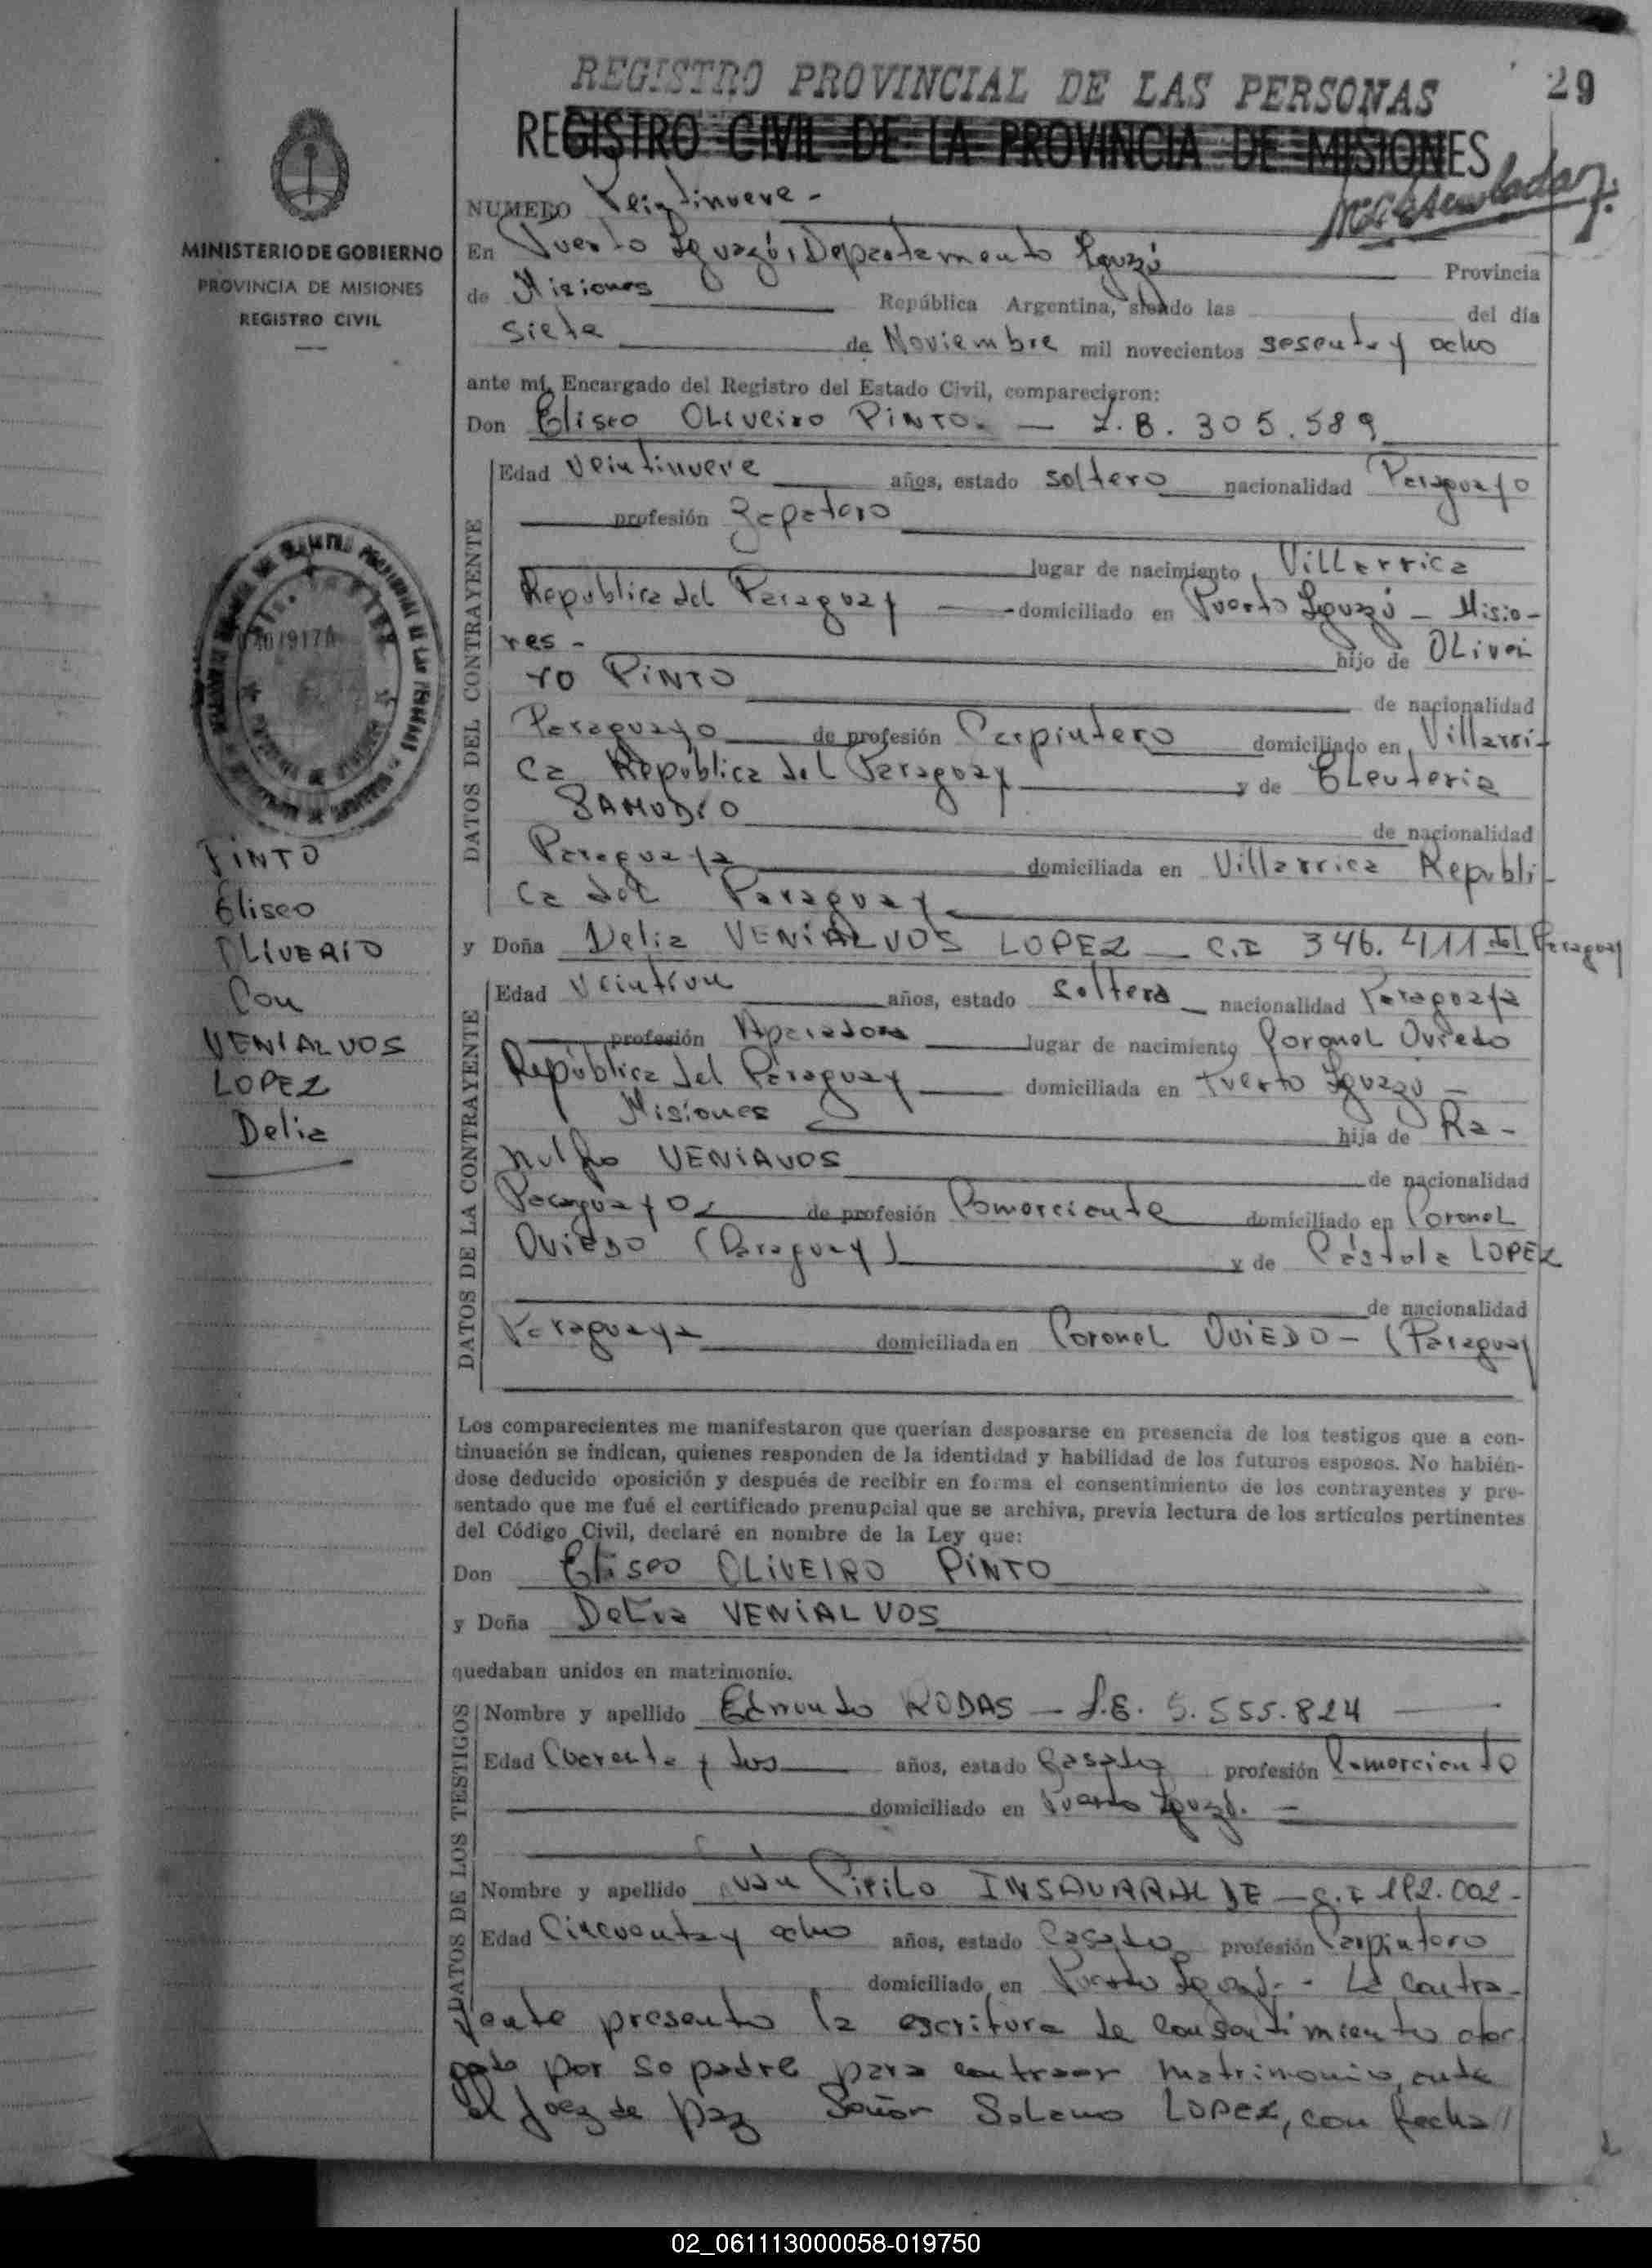 REGISTRO PROVINCIAL DE LAS PERSONAS
29
REGISTRO CIVIL DE LA PROVINCIA DE MISIONES
MINISTERIO DE GOBIERNO
PROVINCIA DE MISIONES
REGISTRO CIVIL
NUMERO Veintinueve -
En Puerto Iguazú, Departamento Iguazú Provincia
de Misiones República Argentina, siendo las del día
siete de Noviembre mil novecientos sesenta y ocho
ante mí, Encargado del Registro del Estado Civil, comparecieron:
Don Eliseo OLiveiro PiNTO. — 305.589
DATOS DEL CONTRAYENTE
Edad veintinueve años, estado soltero nacionalidad Paraguayo
profesión Zapatero
lugar de nacimiento Villarrica
Republica del Paraguay domiciliado en Puerto Iguazú - Misio-
nes - hijo de OLivei
ro PiNTO de nacionalidad
Paraguayo de profesión Carpintero domiciliado en Villarri-
ca Republica del Paraguay y de Eleuteria
SAMUDIO de nacionalidad
Paraguaya domiciliada en Villarrica Republi-
ca del Paraguay
y Doña Delia VENiALVOS LOPEZ — C.I 346.411 del Paraguay
DATOS DE LA CONTRAYENTE
Edad años, estado soltera nacionalidad Paraguaya
profesión Aparadora lugar de nacimiento Coronel Oviedo
República del Paraguay domiciliada en Puerto Iguazú -
Misiones hija de Ra-
nulfo VENiAVOS de nacionalidad
Paraguayo de profesión Comerciante domiciliado en Coronel
OViEDO (Paraguay) y de Pástola LOPEZ
de nacionalidad
Paraguaya domiciliada en Coronel OViEDO - (Paraguay
Los comparecientes me manifestaron que querían desposarse en presencia de los testigos que a con-
tinuación se indican, quienes responden de la identidad y habilidad de los futuros esposos. No habién-
dose deducido oposición y después de recibir en forma el consentimiento de los contrayentes y pre-
sentado que me fué el certificado prenupcial que se archiva, previa lectura de los artículos pertinentes
del Código Civil, declaré en nombre de la Ley que:
Don Eliseo OLiVEIRO PiNTO
y Doña Delia VENiALVOS
quedaban unidos en matrimonio.
DATOS DE LOS TESTIGOS
Nombre y apellido Edmundo RODAS — L.E. 5.555.824
Edad Cuarenta y dos años, estado Casado profesión Comerciante
domiciliado en Puerto Iguazú. -
Nombre y apellido Juan Cirilo INSAURRALDE — C.I 192.002 -
Edad Cincuenta y ocho años, estado Casado profesión Carpintero
domiciliado en Puerto Iguazú. - La contra-
yente presento la escritura de consentimiento otor
gado por su padre para contraer matrimonio, ante
el Juez de Paz Señor Solano LOPEZ, con fecha //
PiNTO
Eliseo
OLIVERIO
Con
VENIALVOS
LOPEZ
Delia
02_061113000058-019750